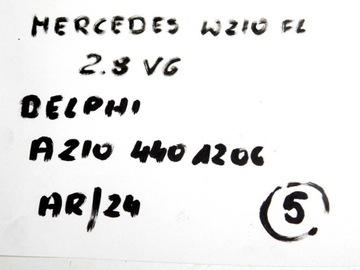 MERCEDES W210 FL
2.8 V6
DELPHI
A210 440 1206
AR/24 5